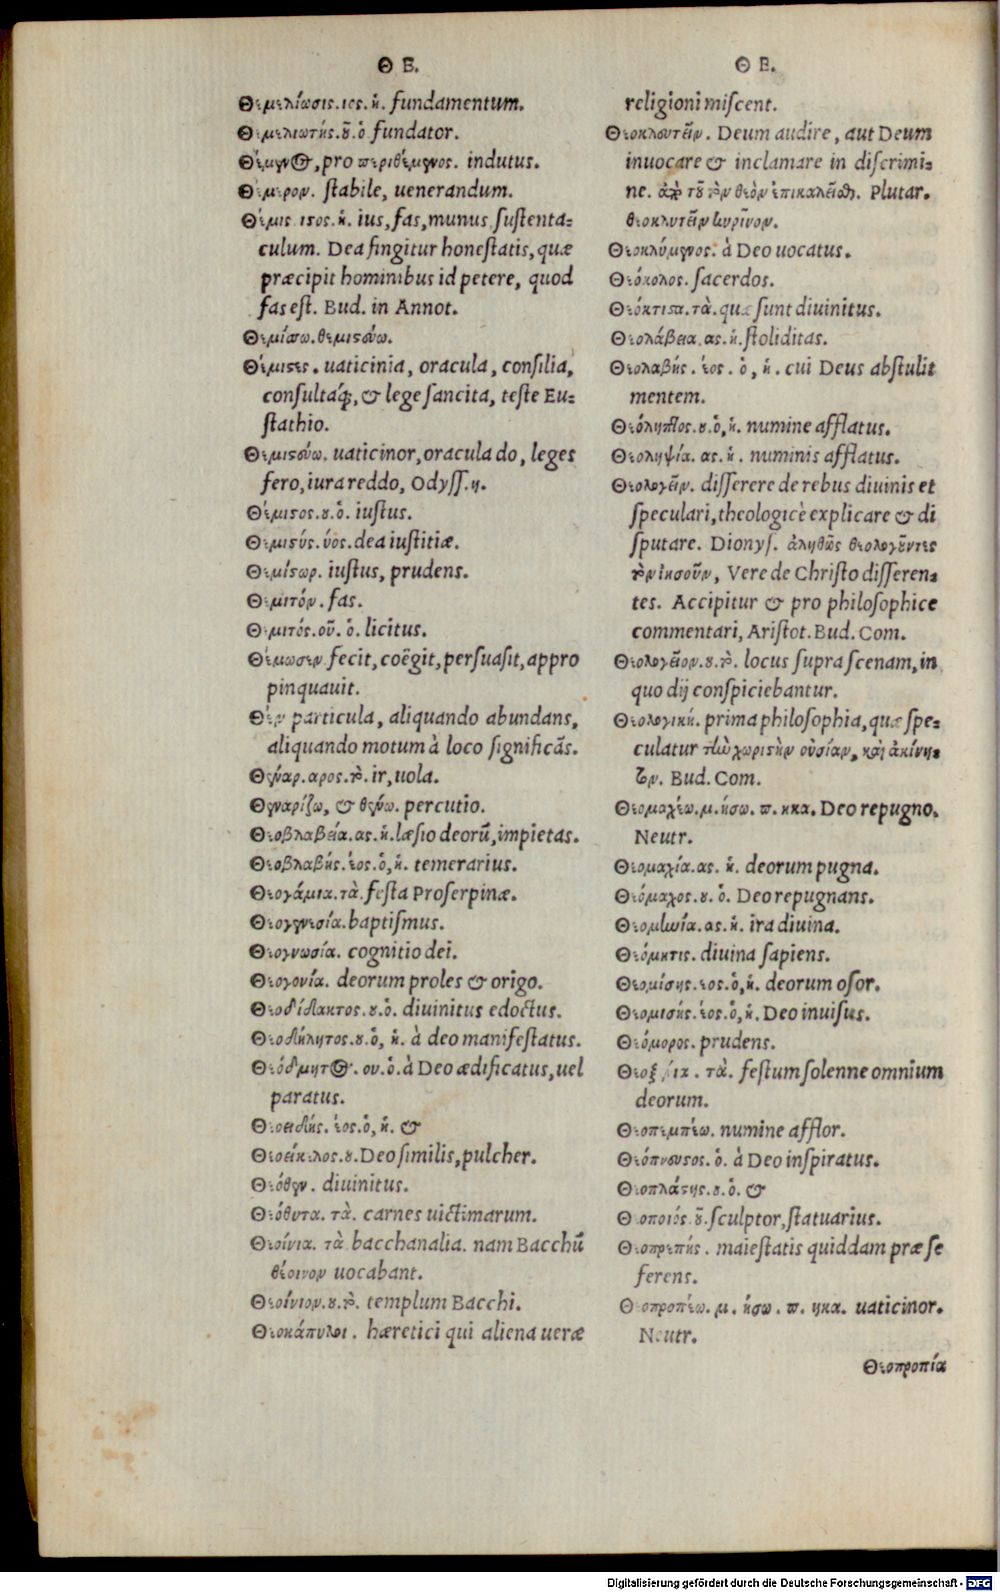 Θ Ε.
Θεμελίωσις. ιος. ἡ. fundamentum.
Θεμελιωτής. οῦ. ὁ fundator.
Θέμενος, pro περιθέμενος. indutus.
Θέμερον. stabile, uenerandum.
Θέμις ιστος. ἡ. ius, fas, munus, sustenta=
culum. Dea fingitur honestatis, quæ
præcipit hominibus id petere, quod
fas est. Bud. in Annot.
Θεμίσσω. θεμιστεύω.
Θέμιστες. uaticinia, oracula, consilia,
consultaq́;, & lege sancita, teste Eu=
stathio.
Θεμιστεύω. uaticinor, oracula do, leges
fero, iura reddo, Odyss. η.
Θέμιστος. ου. ὁ. iustus.
Θεμιστύς. ύος. dea iustitiæ.
Θεμίστωρ. iustus, prudens.
Θεμιτόν. fas.
Θεμιτός. οῦ. ὁ. licitus.
Θέμωσεν fecit, coëgit, persuasit, appro
pinquauit.
Θεν particula, aliquando abundans,
aliquando motum à loco significãs.
Θέναρ. αρος. τὸ. ir, uola.
Θεναρίζω, & θένω. percutio.
Θεοβλαβεία. ας. ἡ. læsio deorũ, impietas.
Θεοβλαβής. έος. ὁ, ἡ. temerarius.
Θεογάμια. τὰ. festa Proserpinæ.
Θεογενεσία. baptismus.
Θεογνωσία. cognitio dei.
Θεογονία. deorum proles & origo.
Θεοδίδακτος. ου. ὁ. diuinitus edoctus.
Θεοδήλητος. ου. ὁ, ἡ. à deo manifestatus.
Θεόδμητος. ου. ὁ. à Deo ædificatus, uel
paratus.
Θεοειδής. έος. ὁ, ἡ. &
Θεοείκελος. ου. Deo similis, pulcher.
Θεόθεν. diuinitus.
Θεόθυτα. τὰ. carnes uictimarum.
Θεοίνια. τὰ bacchanalia. nam Bacchũ
θέοινον uocabant.
Θεοίνιον. ου. τὸ. templum Bacchi.
Θεοκάπυλοι. hæretici qui aliena ueræ
Θ Ε.
religioni miscent.
Θεοκλυτεῖν. Deum audire, aut Deum
inuocare & inclamare in discrimi=
ne. ἀπὸ τοῦ τὸν θεὸν ἐπικαλεῖσθαι. Plutar.
θεοκλυτεῖν κυρῖνον.
Θεοκλύμενος. à Deo uocatus.
Θεόκολος. sacerdos.
Θεόκτιστα. τὰ. quæ sunt diuinitus.
Θεολάβεια. ας. ἡ. stoliditas.
Θεολαβής. έος. ὁ, ἡ. cui Deus abstulit
mentem.
Θεόληπτος. ου. ὁ, ἡ. numine afflatus.
Θεοληψία. ας. ἡ. numinis afflatus.
Θεολογεῖν. disserere de rebus diuinis et
speculari, theologicè explicare & di
sputare. Dionys. ἀληθῶς θεολογοῦντες
τὸν ἰησοῦν, Vere de Christo disseren=
tes. Accipitur & pro philosophice
commentari, Aristot. Bud. Com.
Θεολογεῖον. ου. τὸ. locus supra scenam, in
quo dij conspiciebantur.
Θεολογική. prima philosophia, quæ spe=
culatur τὴν χωριστὴν οὐσίαν, καὶ ἀκίνη=
τον. Bud. Com.
Θεομαχέω. μ. ήσω. π. ηκα. Deo repugno.
Neutr.
Θεομαχία. ας. ἡ. deorum pugna.
Θεόμαχος. ου. ὁ. Deo repugnans.
Θεομηνία. ας. ἡ. ira diuina.
Θεόμητις. diuina sapiens.
Θεομίσης. εος. ὁ, ἡ. deorum osor.
Θεομισής. έος. ὁ, ἡ. Deo inuisus.
Θεόμορος. prudens.
Θεοξένια. τὰ. festum solenne omnium
deorum.
Θεοπεμπέω. numine afflor.
Θεόπνευστος. ὁ. à Deo inspiratus.
Θεοπλάστης. ου. ὁ. &
Θεοποιός. οῦ. sculptor, statuarius.
Θεοπρεπής. maiestatis quiddam præ se
ferens.
Θεοπροπέω. μ. ήσω. π. ηκα. uaticinor.
Neutr.
Θεοπροπία
Digitalisierung gefördert durch die Deutsche Forschungsgemeinschaft - DFG